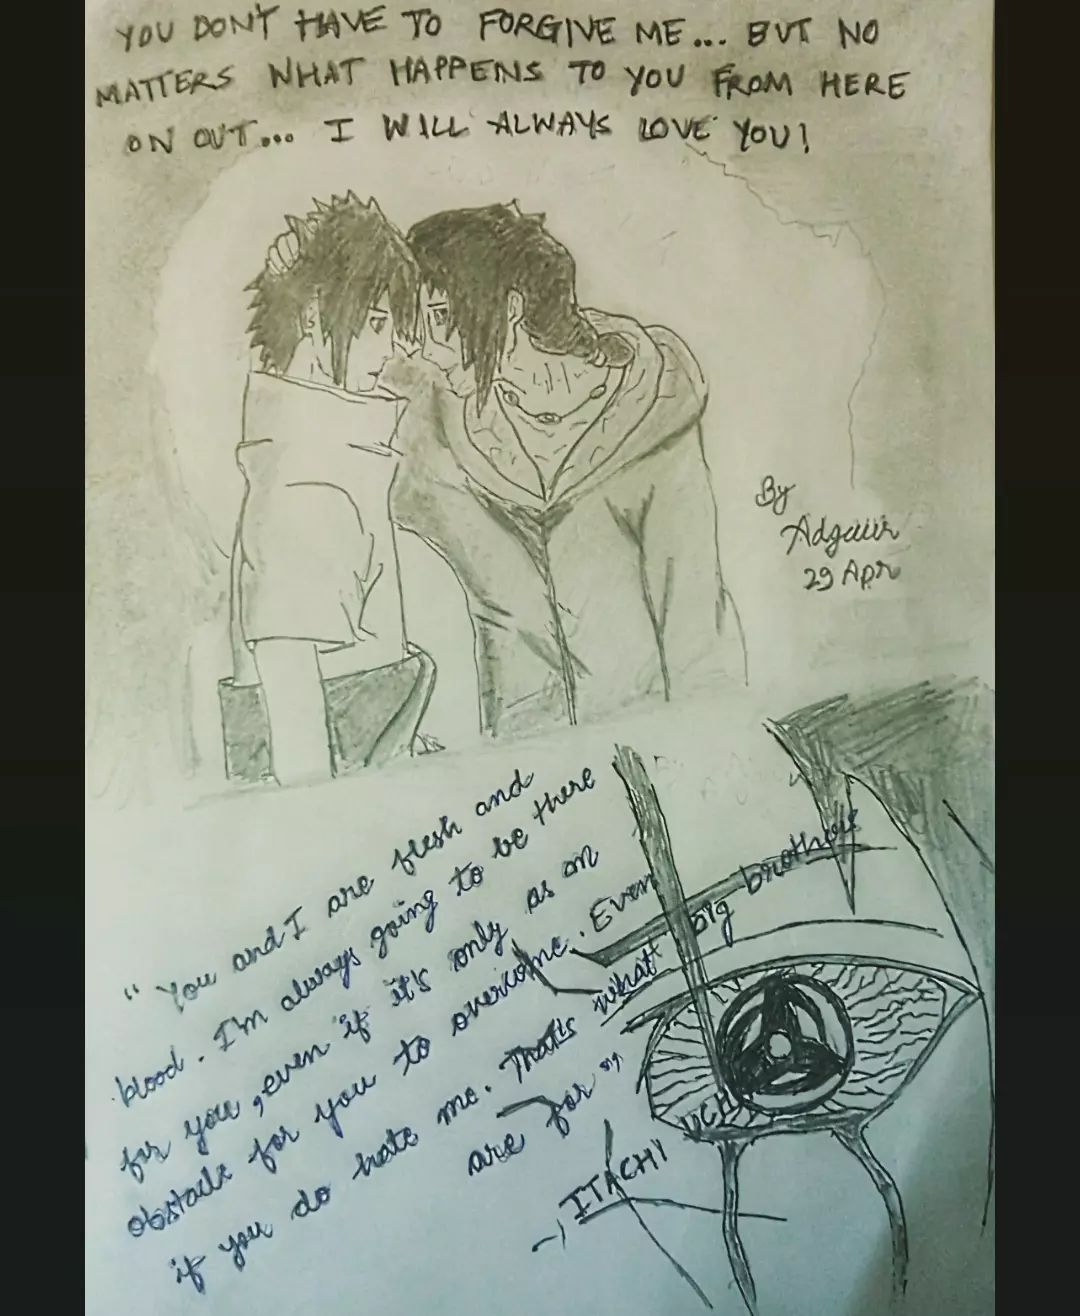 YOU DON'T HAVE TO FORGIVE ME... BUT NO
MATTERS WHAT HAPPENS TO YOU FROM HERE
ON OUT... I WILL ALWAYS LOVE YOU!
By
Adgaur
29 Apr
" You and I are flesh and
blood. I'm always going to be there
for you, even if it's only as an
obstacle for you to overcome. Even
if you do hate me. That's what big brothers
are for "
→ ITACHI UCH